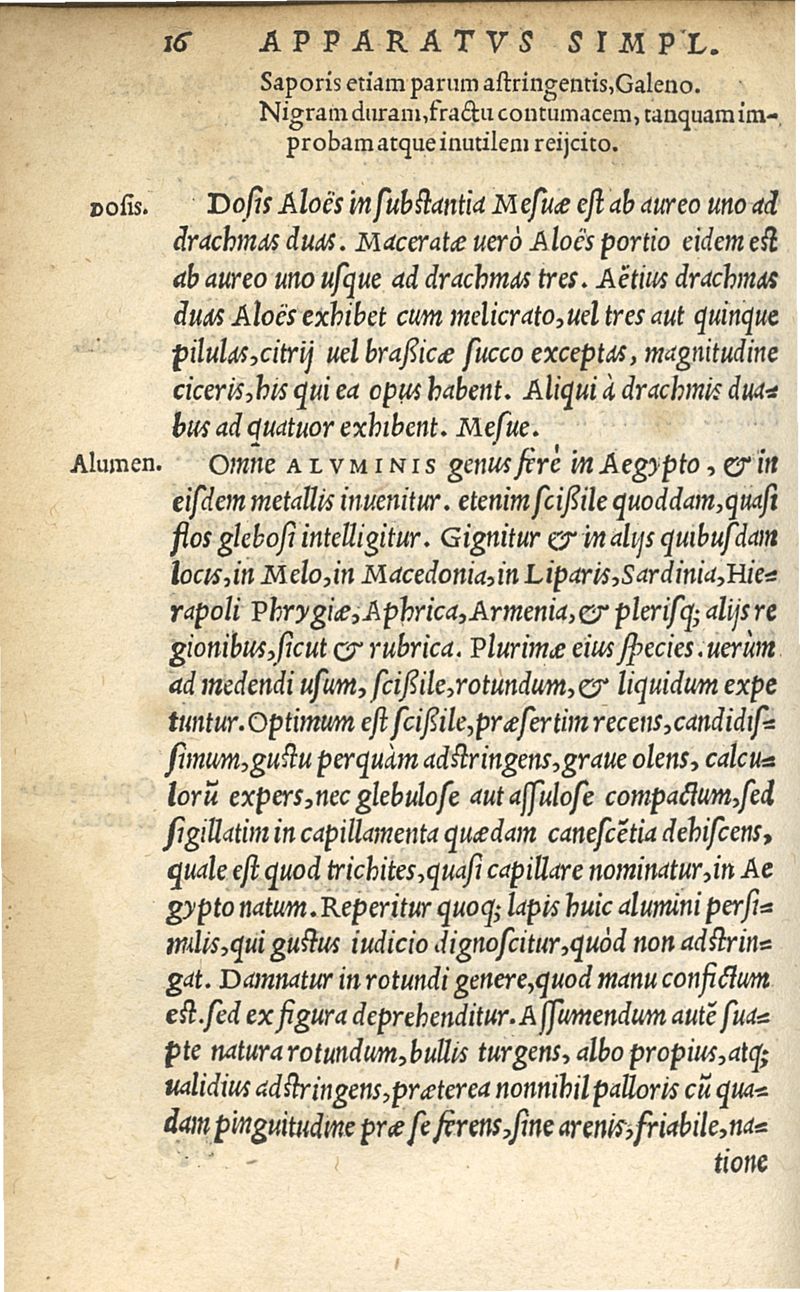 16 APPARATVS SIMPL.
Saporis etiam parum astringentis, Galeno.
Nigram duram, fractu contumacem, tanquam im-
probam atque inutilem reijcito.
Dosis. Dosis Aloës in substantia Mesuæ est ab aureo uno ad
drachmas duas. Maceratæ uerò Aloës portio eidem est
ab aureo uno usque ad drachmas tres. Aëtius drachmas
duas Aloës exhibet cum melicrato, uel tres aut quinque
pilulas, citrij uel braßicæ succo exceptas, magnitudine
ciceris, his qui ea opus habent. Aliqui à drachmis dua-
bus ad quatuor exhibent. Mesue.
Alumen. Omne ALVMINIS genus ferè in Aegypto, & in
eisdem metallis inuenitur. etenim scißile quoddam, quasi
flos glebosi intelligitur. Gignitur & in alijs quibusdam
locis, in Melo, in Macedonia, in Liparis, Sardinia, Hie-
rapoli Phrygiæ, Aphrica, Armenia, & plerisq; alijs re
gionibus, sicut & rubrica. Plurimæ eius species. uerùm
ad medendi usum, scißile, rotundum, & liquidum expe
tuntur. Optimum est scißile, præsertim recens, candidis-
simum, gustu perquàm adstringens, graue olens, calcu-
lorũ expers, nec glebulose aut assulose compactum, sed
sigillatim in capillamenta quædam canescẽtia dehiscens,
quale est quod trichites, quasi capillare nominatur, in Ae
gypto natum. Reperitur quoq; lapis huic alumini persi-
milis, qui gustus iudicio dignoscitur, quòd non adstrin-
gat. Damnatur in rotundi genere, quod manu confictum
est. sed ex figura deprehenditur. Assumendum autẽ sua-
pte natura rotundum, bullis turgens, albo propius, atq;
ualidius adstringens, præterea nonnihil palloris cũ qua-
dam pinguitudine præ se ferens, sine arenis, friabile, na-
tione